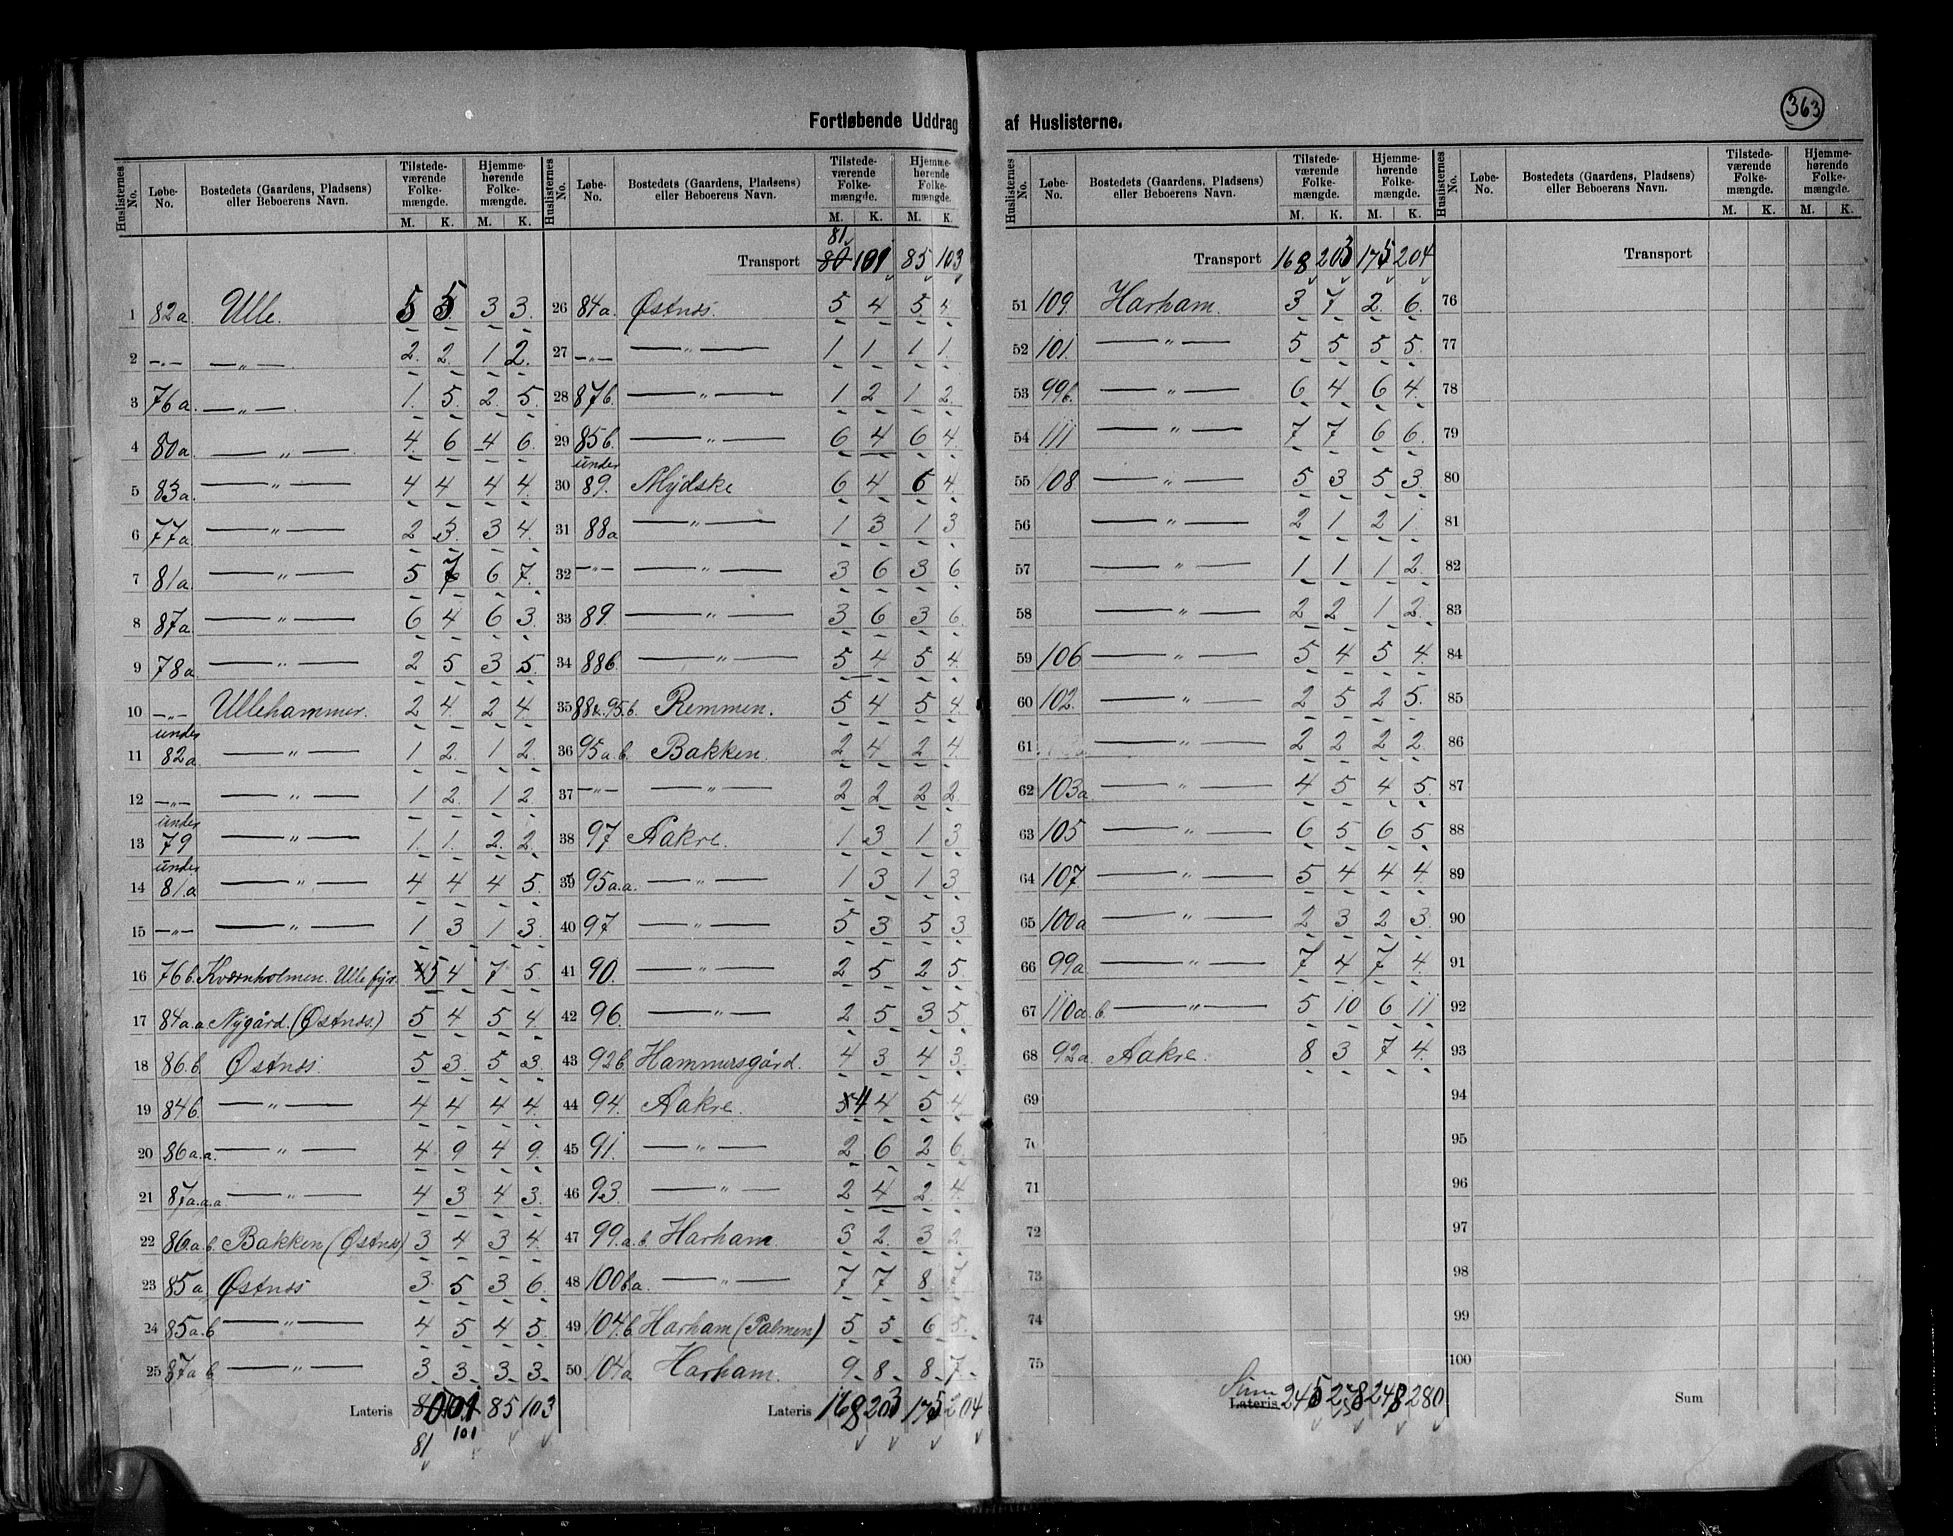 Fortløbende Uddrag af Huslisterne.
363
Huslisternes No. Løbe-No. Bostedets (Gaardens, Pladsens) eller Beboerens Navn. Tilstedeværende Folkemængde. M. K. Hjemmehørende Folkemængde. M. K.
1 82a. Ulle. 5 5 3 3.
2 -„- —„— 2. 2. 1 2.
3 76a. —„— 1. 5. 2. 5.
4 80a. —„— 4. 6 4 6.
5 83a. —„— 4 4 4 4.
6 77a —„— 2 3. 3 4.
7 81a —„— 5 7 6 7.
8 87a —„— 6 4 6 3.
9 78a —„— 2 5 3 5.
10 -„- Ullehammer. 2 4. 2 4.
11 under 82a —„— 1 2. 1 2.
12 -„- —„— 1 2. 1 2.
13 under 79 —„— 1. 1. 2. 2.
14 under 81.a —„— 4 4 4 5.
15 -„- —„— 1 3 1 3.
16 76b. Kværnholmen. Ulle fyr. 5 4 7 5.
17 84a.a Nygård. (Østnæs.) 5 4 5 4
18 86.b. Østnæs. 5 3. 5 3.
19 84b. —„— 4 4 4 4.
20 86a.a. —„— 4 9 4 9.
21 87a.a.a —„— 4 3 4 3.
22 86a.b. Bakken (Østnæs) 3 4 3 4.
23 85a Østnæs 3. 5 3 6.
24 85a.b —„— 4 5 4 5.
25 87a b —„— 3. 3. 3. 3.
Lateris 81 101 85 103
Huslisternes No. Løbe-No. Bostedets (Gaardens, Pladsens) eller Beboerens Navn. Tilstedeværende Folkemængde. M. K. Hjemmehørende Folkemængde. M. K.
81
Transport 80 101 85 103
26 84a. Østnæs. 5 4 5 4
27 -„- —„— 1 1 1 1.
28 87b. —„— 1 2 1 2.
29 85b. —„— 6 4 6 4.
30 under 89. Mydske 6 4 6 4.
31 88a —„— 1 3 1 3
32 -„- —„— 3 6 3 6
33 89. —„— 3 6 3 6.
34 88b. —„— 5 4 5 4.
35 95.b. Remmen. 5 4 5 4.
36 95a.b. Bakken. 2 4 2 4.
37 -„- —„— 2 2 2 2.
38 97 Aakre. 1 3 1 3
39 95a.a. —„— 1 3 1 3.
40 97 —„— 5 3 5 3
41 90. —„— 2 5 2 5.
42 96. —„— 2 5 3 5.
43 92b. Hammersgård. 4 3 4 3.
44 94. Aakre. 4 4 5 4
45 91. —„— 2 6 2 6.
46 93. —„— 2 4 2 4.
47 99.a.b. Harham 3 2. 3 2.
48 100b.a. —„— 7 7 8 7
49 104.b. Harham (Palmen) 5 5 6 5.
50 104a Harham. 9 8 8 7
Lateris 168 203 175 204
Huslisternes No. Løbe-No. Bostedets (Gaardens, Pladsens) eller Beboerens Navn. Tilstedeværende Folkemængde. M. K. Hjemmehørende Folkemængde. M. K.
Transport 168 203 175 204
51 109. Harham. 3 7 2 6.
52 101. —„— 5 5 5 5.
53 99b. —„— 6 4 6 4.
54 111 —„— 7 7 6 6.
55 108. —„— 5 3 5 3.
56 —„— 2 1 2 1.
57 —„— 1 1 1 2.
58 —„— 2 2 1 2.
59 106 —„— 5 4 5 4.
60 102. —„— 2 5 2 5.
61 —„— 2 2 2 2.
62 103a. —„— 4 5 4 5.
63 105 —„— 6 5 6 5
64 107. —„— 5 4 4 4.
65 100a —„— 2 3 2 3.
66 99a —„— 7 4 7 4.
67 110a.b. —„— 5 10 6 11
68 92a. Aakre. 8 3 7 4.
69
70
71
72
73
74
75
Sum
Lateris 245 278 248 280
Huslisternes No. Løbe-No. Bostedets (Gaardens, Pladsens) eller Beboerens Navn. Tilstedeværende Folkemængde. M. K. Hjemmehørende Folkemængde. M. K.
Transport
76
77
78
79
80
81
82
83
84
85
86
87
88
89
90
91
92
93
94
95
96
97
98
99
100
Sum